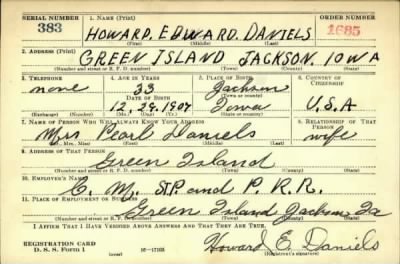 SERIAL NUMBER 1. NAME (Print) ORDER NUMBER
383 HOWARD. EDWARD. DANIELS 1685
(First) (Middle) (Last)
2. ADDRESS (Print)
GREEN ISLAND JACKSON. IOWA
(Number and street or R. F. D. number) (Town) (County) (State)
3. TELEPHONE 4. AGE IN YEARS 5. PLACE OF BIRTH 6. COUNTRY OF CITIZENSHIP
none 33 Jackson
DATE OF BIRTH (Town or county)
12. 29. 1907 Iowa U.S.A
(Exchange) (Number) (Mo.) (Day) (Yr.) (State or country)
7. NAME OF PERSON WHO WILL ALWAYS KNOW YOUR ADDRESS 8. RELATIONSHIP OF THAT PERSON
Mrs Pearl Daniels wife
(Mr., Mrs., Miss) (First) (Middle) (Last)
9. ADDRESS OF THAT PERSON
Green Island
(Number and street or R. F. D. number) (Town) (County) (State)
10. EMPLOYER'S NAME
C. M. ST.P. and P. R.R.
11. PLACE OF EMPLOYMENT OR BUSINESS
Green Island Jackson Ia
(Number and street or R. F. D. number) (Town) (County) (State)
I AFFIRM THAT I HAVE VERIFIED ABOVE ANSWERS AND THAT THEY ARE TRUE.
REGISTRATION CARD
D. S. S. Form 1 (over) Howard E. Daniels
(Registrant's signature)